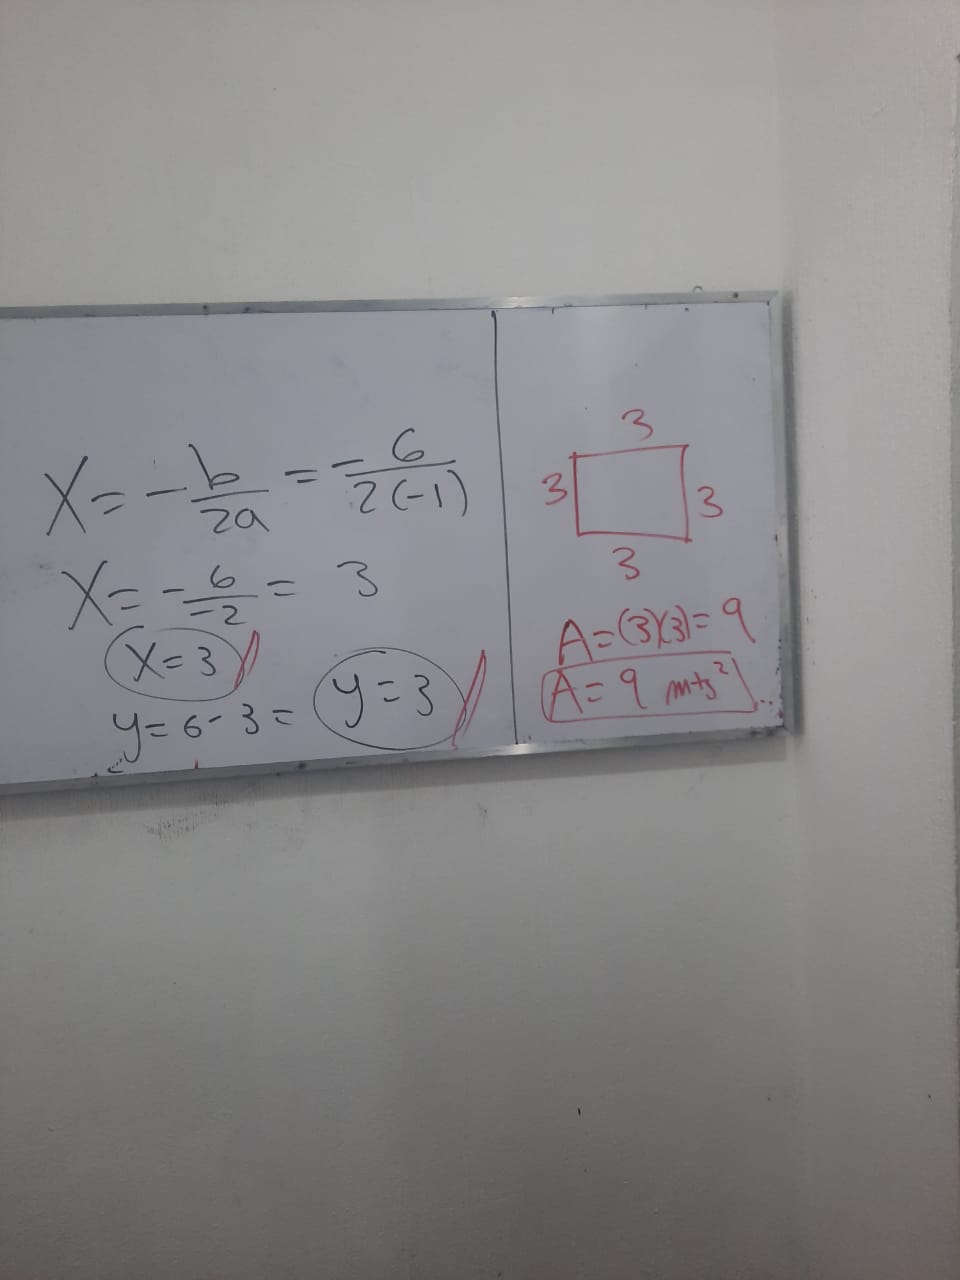 X = - b/2a = - 6/2(-1)
X = - 6/-2 = 3
X = 3
y = 6 - 3 = y = 3
3
3 3
3
A = (3)(3) = 9
A = 9 mts²